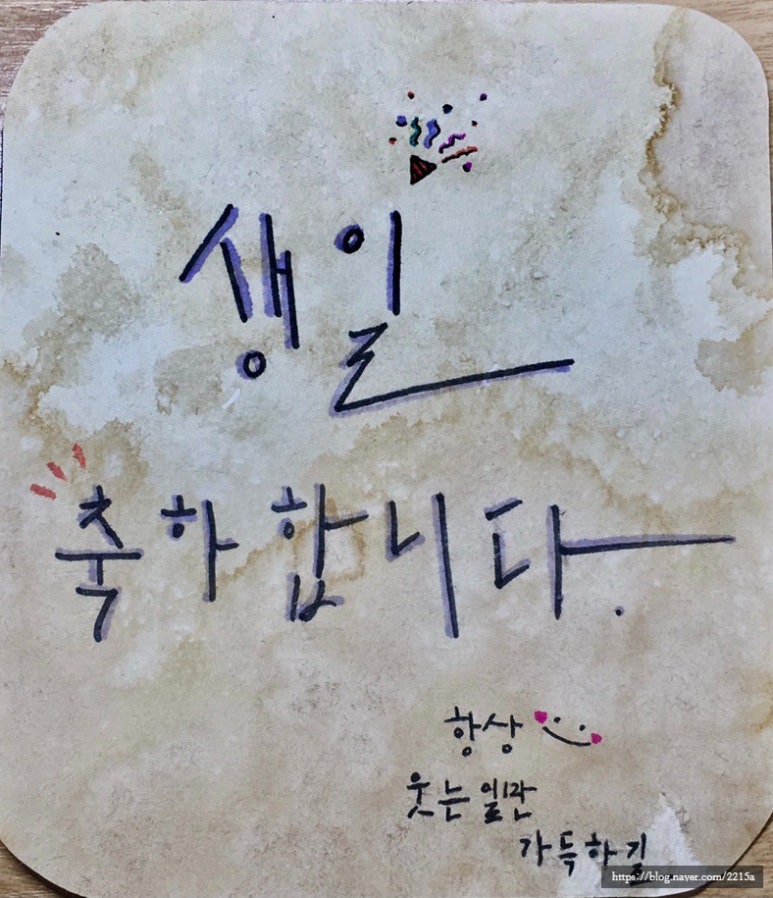 생일
축하합니다.
항상
웃는 일만
가득하길
https://blog.naver.com/2215a